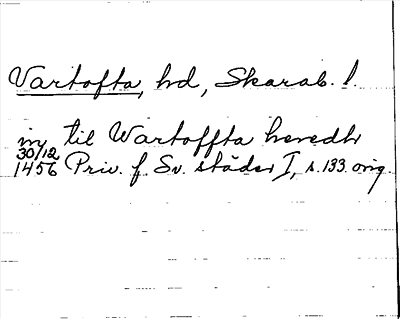 Vartofta, hd, Skarab. l.
in til Wartoffta heredh
30/12
1456 Priv. f. Sv. städer I, s. 133. orig.